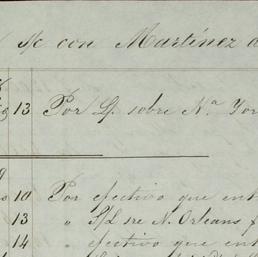 S/c con Martínez
13 Por Lf. sobre Na. Yor
10 Por efectivo que ent
13 " S/L sre N. Orleans f
14 " efectivo que ent